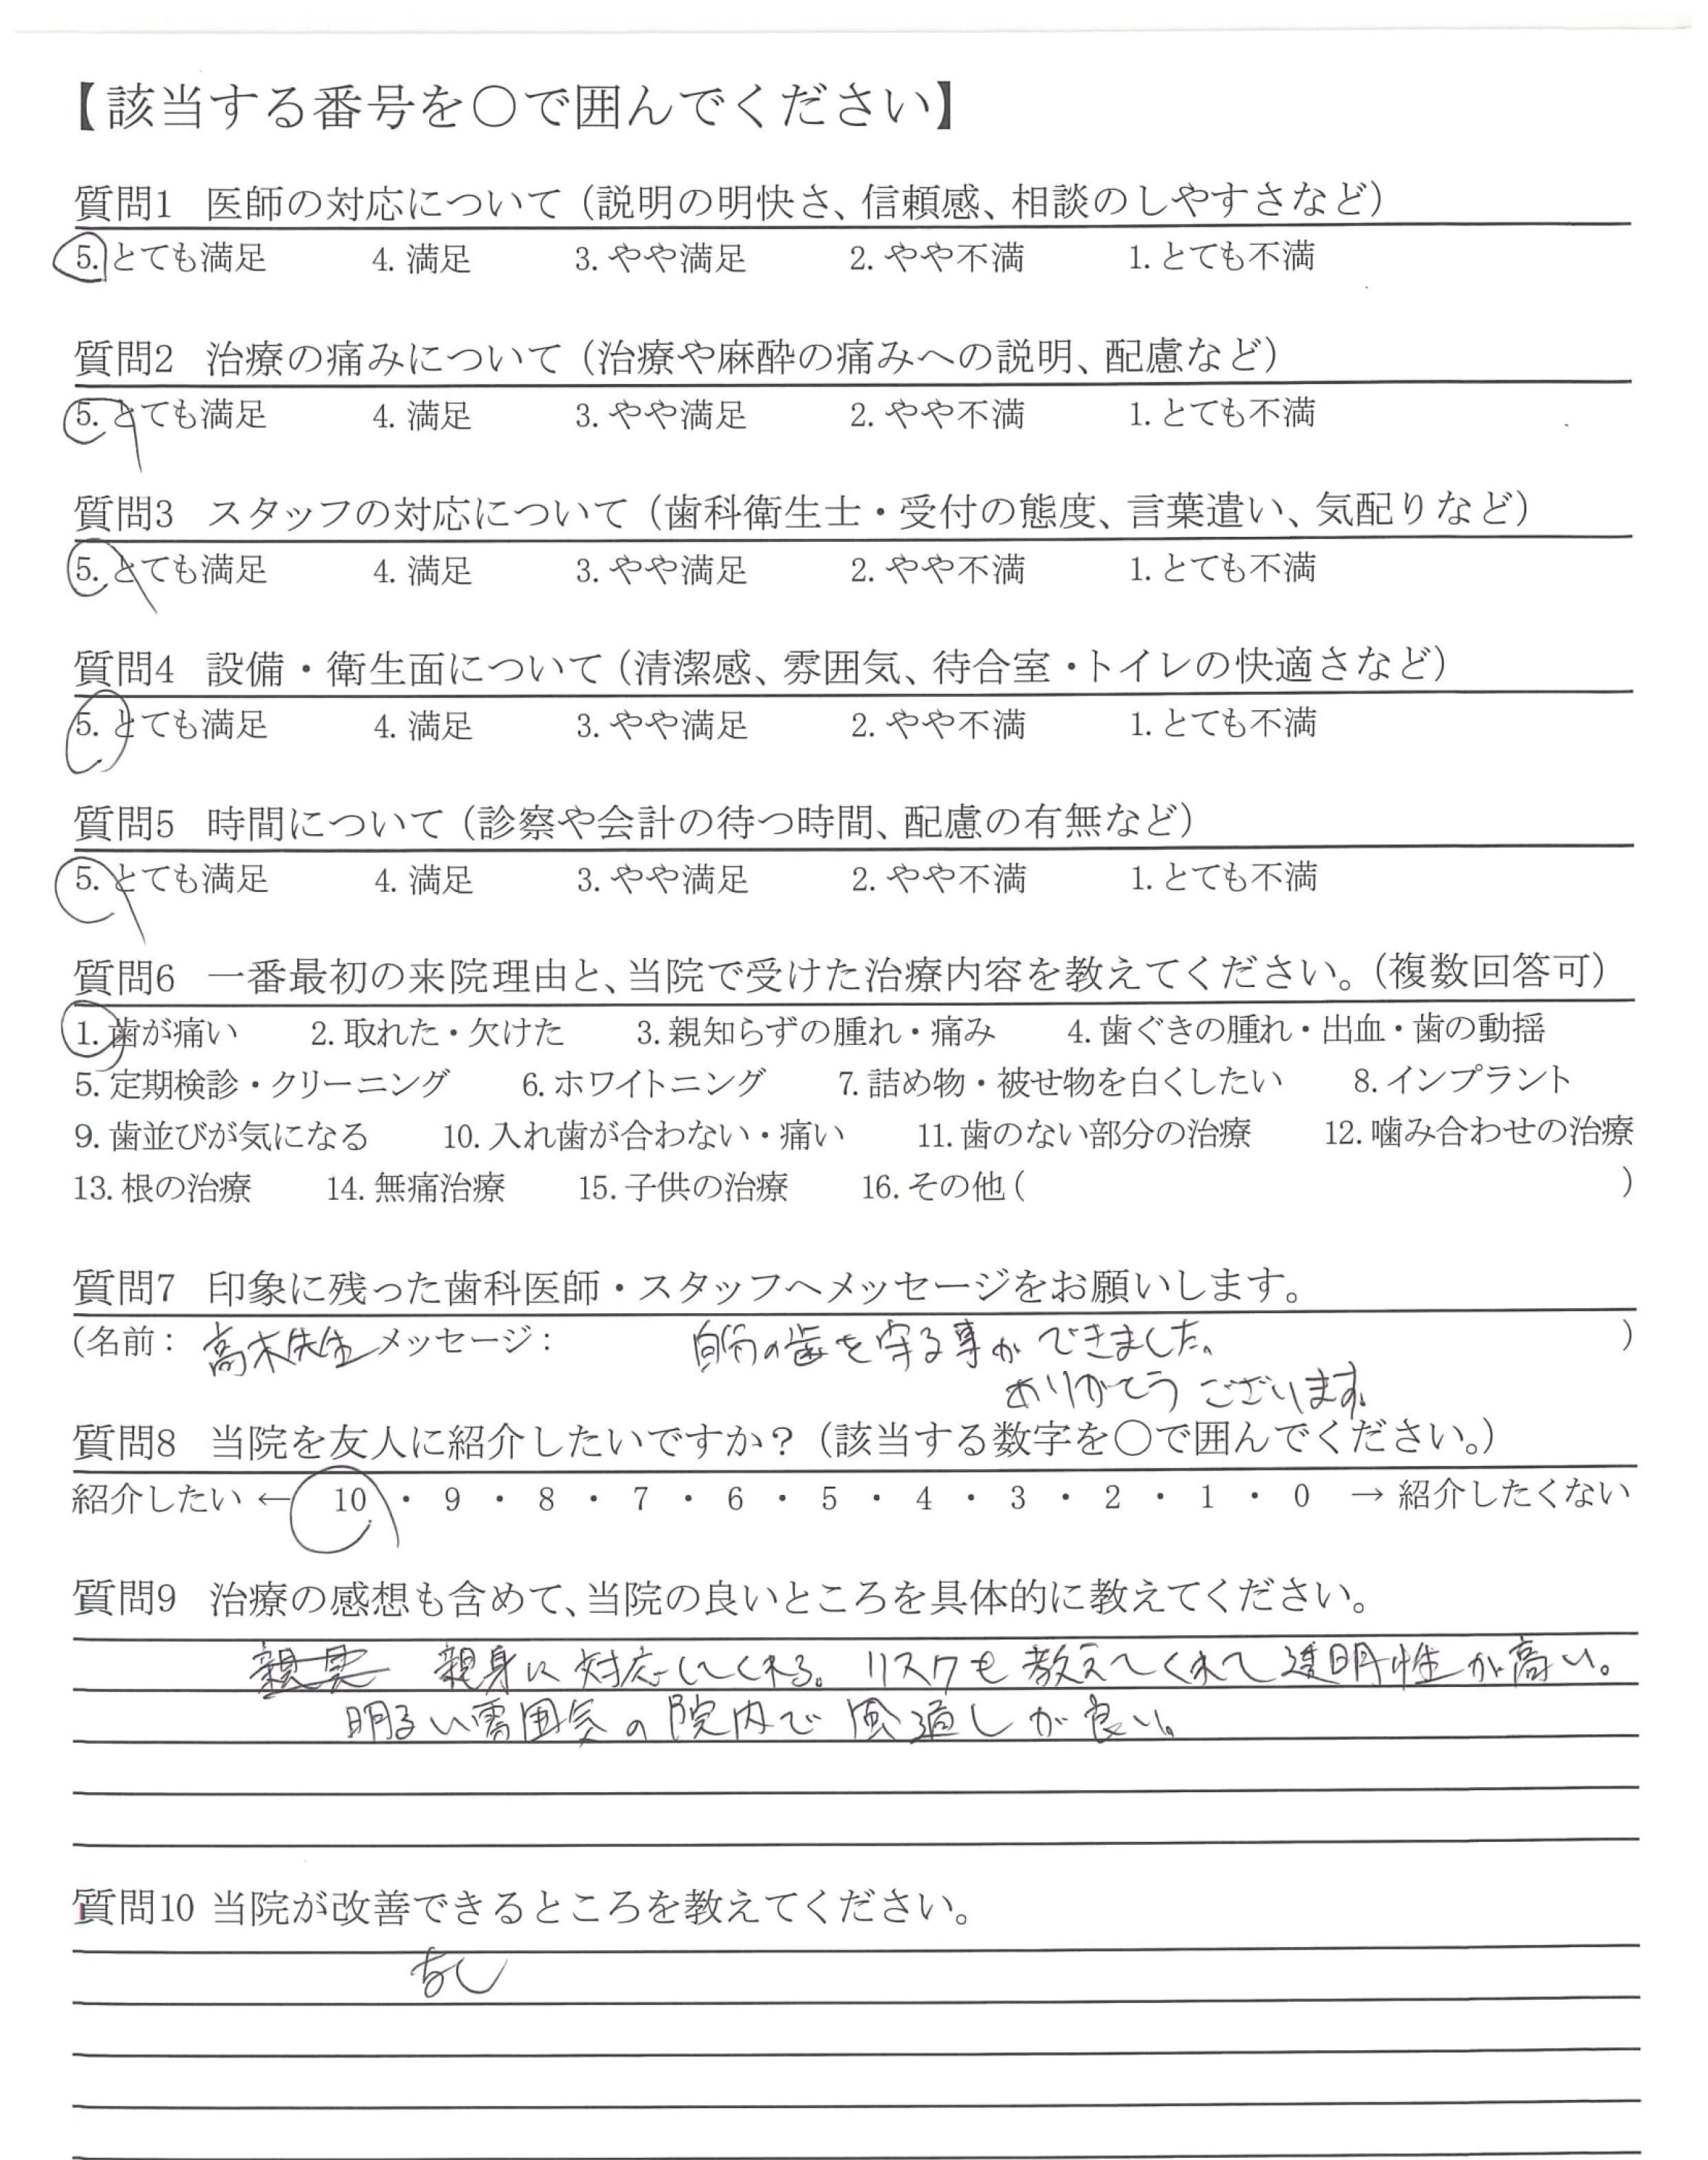 【該当する番号を〇で囲んでください】
質問1 医師の対応について（説明の明快さ、信頼感、相談のしやすさなど）
5. とても満足 4. 満足 3. やや満足 2. やや不満 1. とても不満
質問2 治療の痛みについて（治療や麻酔の痛みへの説明、配慮など）
5. とても満足 4. 満足 3. やや満足 2. やや不満 1. とても不満
質問3 スタッフの対応について（歯科衛生士・受付の態度、言葉遣い、気配りなど）
5. とても満足 4. 満足 3. やや満足 2. やや不満 1. とても不満
質問4 設備・衛生面について（清潔感、雰囲気、待合室・トイレの快適さなど）
5. とても満足 4. 満足 3. やや満足 2. やや不満 1. とても不満
質問5 時間について（診察や会計の待つ時間、配慮の有無など）
5. とても満足 4. 満足 3. やや満足 2. やや不満 1. とても不満
質問6 一番最初の来院理由と、当院で受けた治療内容を教えてください。（複数回答可）
1. 歯が痛い 2. 取れた・欠けた 3. 親知らずの腫れ・痛み 4. 歯ぐきの腫れ・出血・歯の動揺
5. 定期検診・クリーニング 6. ホワイトニング 7. 詰め物・被せ物を白くしたい 8. インプラント
9. 歯並びが気になる 10. 入れ歯が合わない・痛い 11. 歯のない部分の治療 12. 噛み合わせの治療
13. 根の治療 14. 無痛治療 15. 子供の治療 16. その他（ ）
質問7 印象に残った歯科医師・スタッフへメッセージをお願いします。
（名前： 高木先生 メッセージ： 自分の歯を守る事ができました。 ）
ありがとうございます。
質問8 当院を友人に紹介したいですか？（該当する数字を〇で囲んでください。）
紹介したい ← 10 ・ 9 ・ 8 ・ 7 ・ 6 ・ 5 ・ 4 ・ 3 ・ 2 ・ 1 ・ 0 → 紹介したくない
質問9 治療の感想も含めて、当院の良いところを具体的に教えてください。
親身に対応してくれる。リスクも教えてくれて透明性が高い。
明るい雰囲気の院内で風通しが良い。
質問10 当院が改善できるところを教えてください。
なし